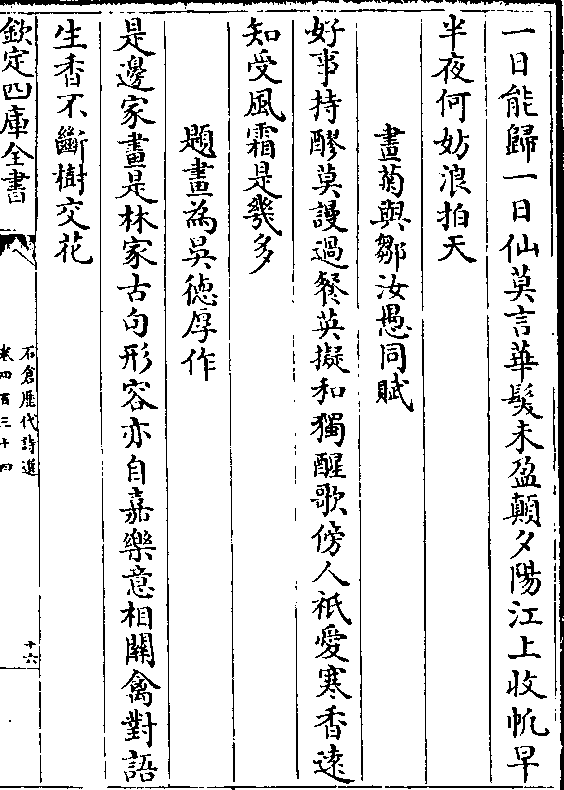 一日能歸一日仙莫言華髮未盈顛夕陽江上收帆早
半夜何妨浪拍天
畫菊與鄒汝愚同賦
好事持醪莫謾過餐英擬和獨醒歌傍人祇愛寒香遠
知受風霜是幾多
題畫為吳德厚作
是邊家畫是林家古句形容亦自嘉樂意相關禽對語
生香不斷樹交花
欽定四庫全書
石倉歷代詩選
卷四百三十四
十六